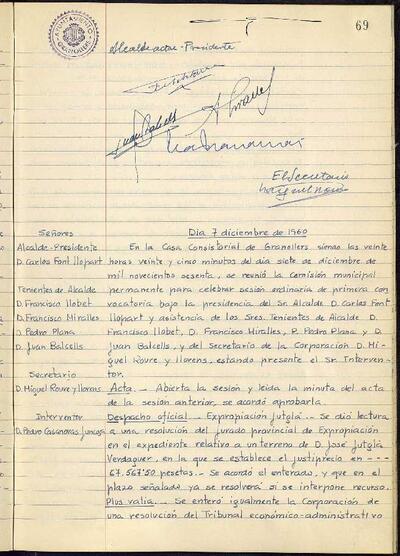 69
AYUNTAMIENTO
GRANOLLERS
Alcalde actal-Presidente
Juan Balcells
El Secretario
Señores
Alcalde-Presidente
D. Carlos Font Llopart
Tenientes de Alcalde
D. Francisco Llobet
D. Francisco Miralles
D. Pedro Plana
D. Juan Balcells
Secretario
D. Miguel Roure y Llorens
Interventor
D. Pedro Casanovas
Dia 7 diciembre de 1960
En la Casa Consistorial de Granollers siendo las veinte
horas veinte y cinco minutos del dia siete de diciembre de
mil novecientos sesenta, se reunió la Comisión municipal
permanente para celebrar sesión ordinaria de primera con
vocatoria bajo la presidencia del Sr. Alcalde D. Carlos Font
Llopart y asistencia de los Sres. Tenientes de Alcalde D.
Francisco Llobet, D. Francisco Miralles, D. Pedro Plana y D.
Juan Balcells, y del Secretario de la Corporación D. Mi-
guel Roure y Llorens, estando presente el Sr Interven-
tor.
Acta. - Abierta la sesión y leida la minuta del acta
de la sesión anterior, se acordó aprobarla.
Despacho oficial. - Expropiación Jutglá. - Se dió lectura
a una resolución del jurado provincial de Expropiación
en el expediente relativo a un terreno de D. José Jutglá
Verdaguer, en la que se establece el justiprecio en - - -
67.567'50 pesetas. - Se acordó el enterado, y que en el
plazo señalado ya se resolverá si se interpone recurso.
Plus valia. - Se enteró igualmente la Corporación de
una resolución del Tribunal económico-administrativo